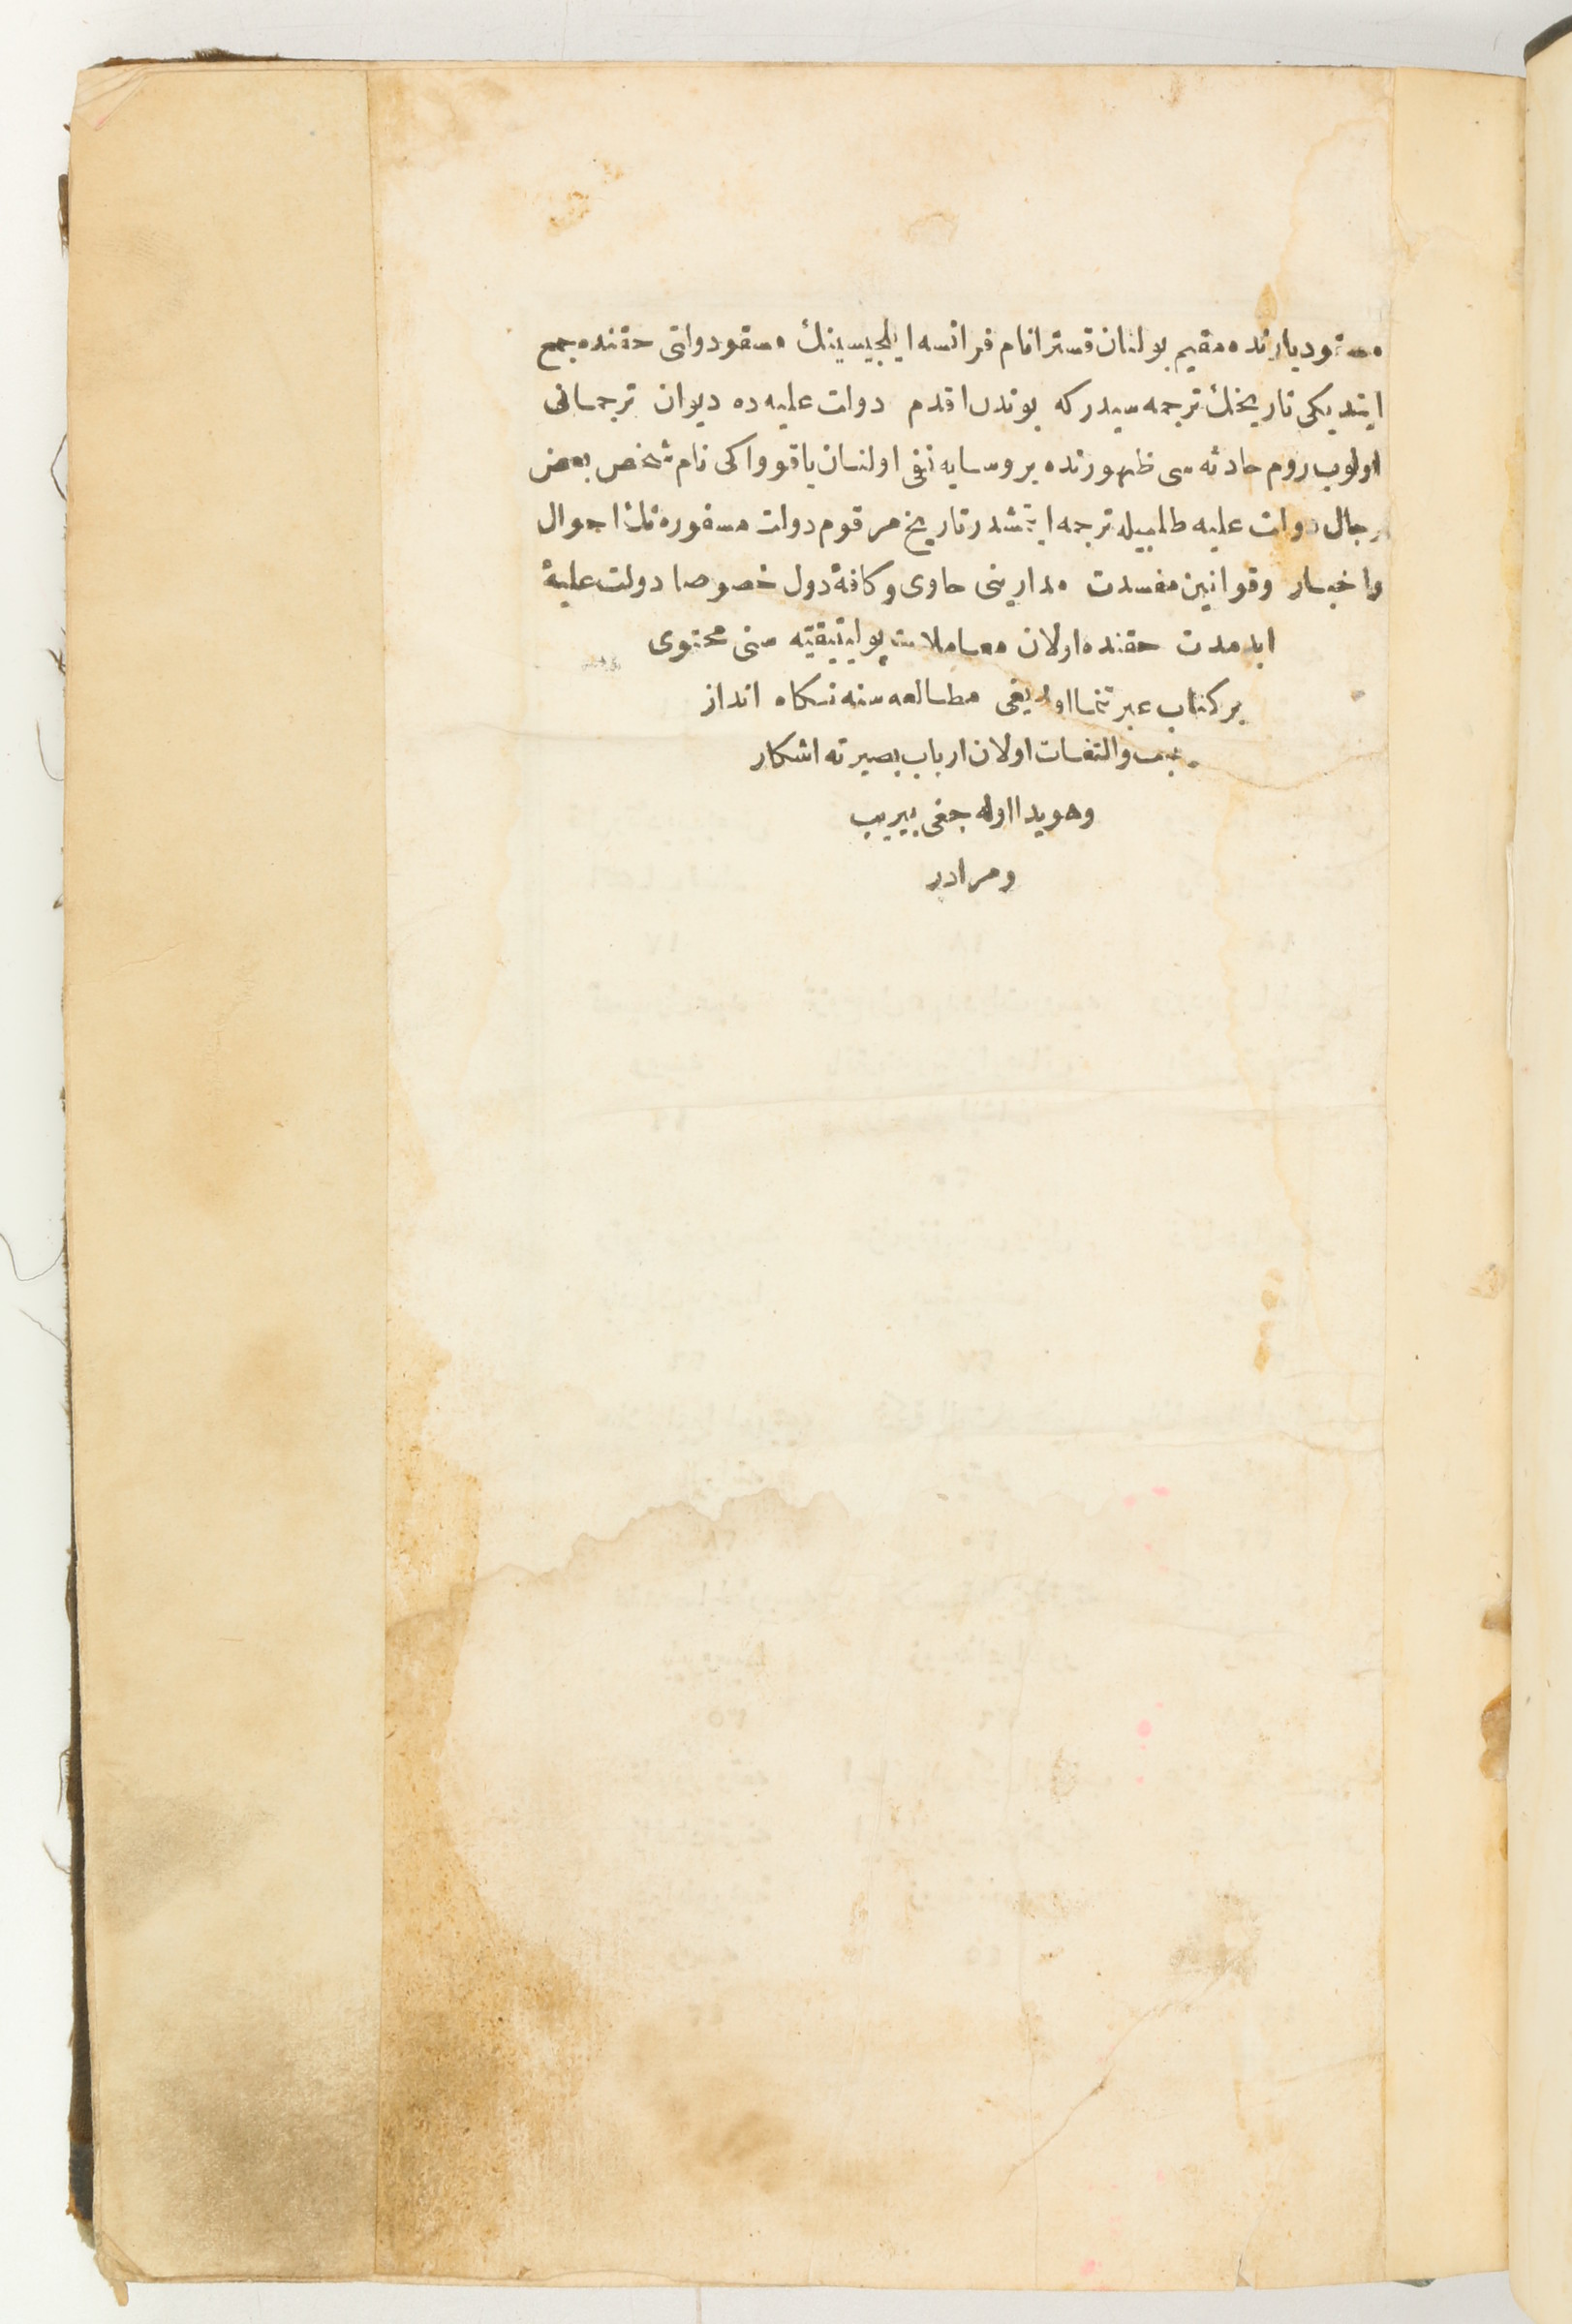 مسقو ديارنده مقيم بولنان قسترا نام فرانسه ايلچيسينك مسقو دولتى حقنده جمع
ايتديكى تاريخنك ترجمه سيدر كه بوندن اقدم دولت عليه ده ديوان ترجمانى
اولوب روم حادثه سى ظهورنده بروسايه نفى اولنان ياقوواكى نام شخص بعض
رجال دولت عليه طلبيله ترجمه ايتمشدر تاريخ مرقوم دولت مسفوره نك احوال
واخبار وقوانين مفسدت مدارينى حاوى وكافهٔ دول خصوصا دولت عليهٔ
ابد مدت حقنده اولان معاملات پوليتيقيّه سنى محتوى
بر كتاب عبرتنما اولديغى مطالعه سنه نكاه انداز
والتفات اولان ارباب بصيرته اشكار
وهويدا اوله جغى بيريب
ومرادر